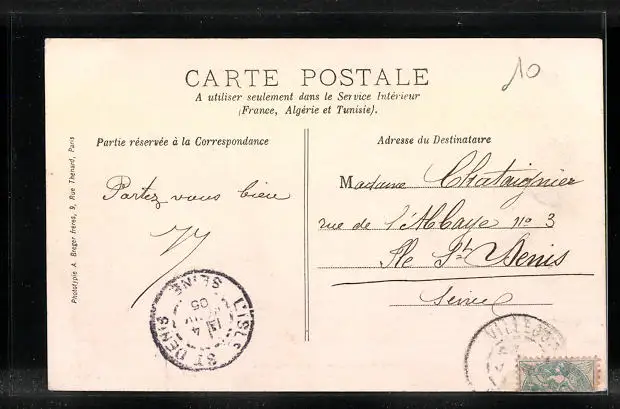 10
CARTE POSTALE
A utiliser seulement dans le Service Intérieur
(France, Algérie et Tunisie).
Partie réservée à la Correspondance
Adresse du Destinataire
Phototypie A. Breger frères, 9, Rue Thénard, Paris
Portez vous bien
Madame Chataignier
rue de l'Abbaye no 3
Ile St Denis
Seine
L'ISLE ST DENIS
SEINE
4
05